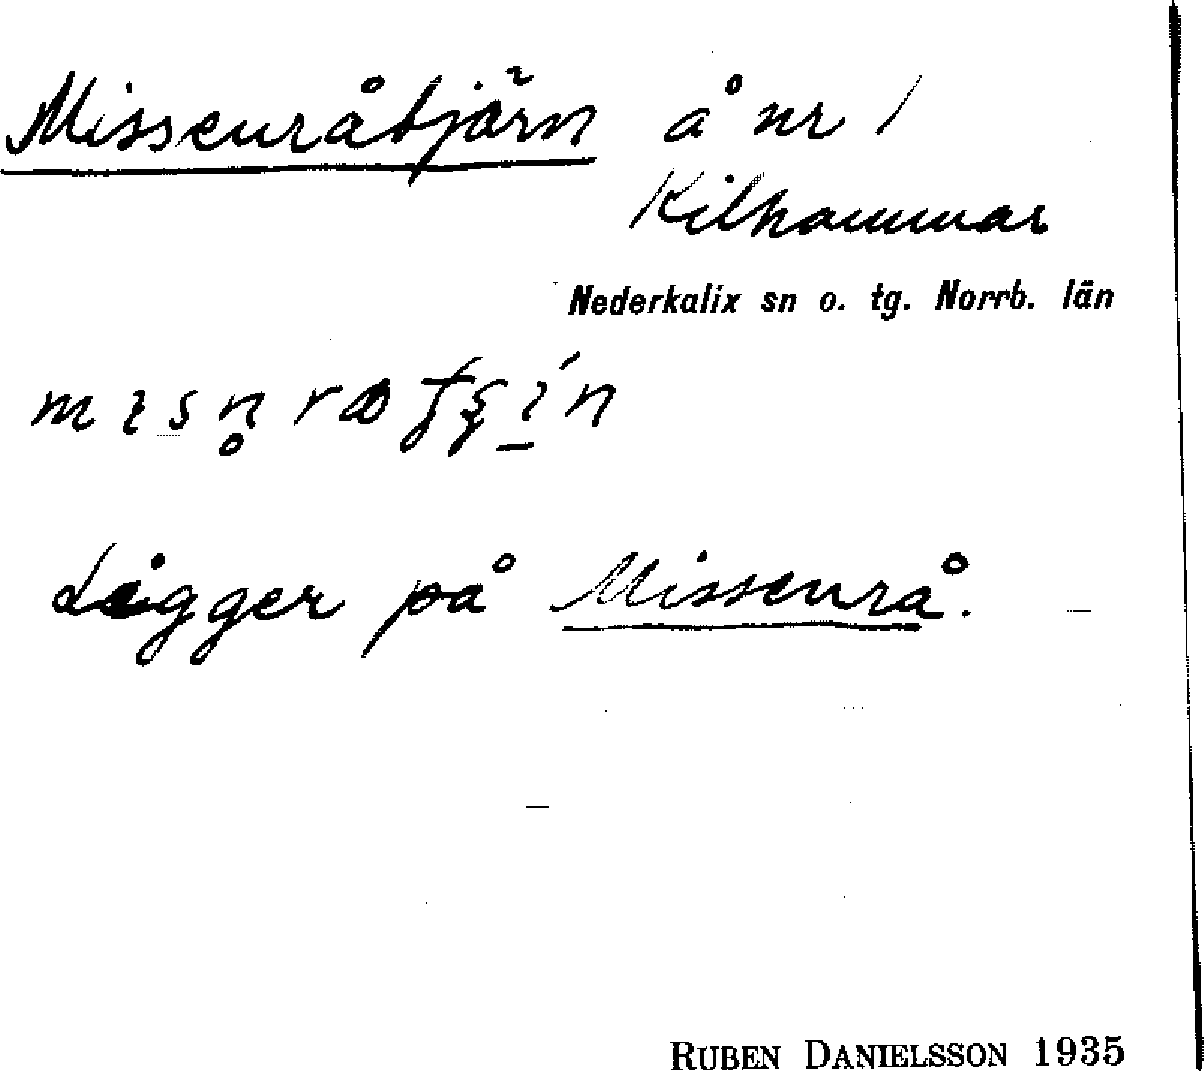 Missenråtjärn å nr 1
Kilhammar
Nederkalix sn o. tg. Norrb. län
Ligger på Missenrå.
RUBEN DANIELSSON 1935